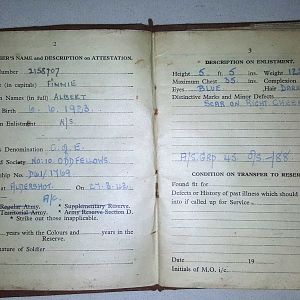 2
ER'S NAME and DESCRIPTION on ATTESTATION.
Number 2158707
(in capitals) FINNIE
n Names (in full) ALBERT
Birth 6. 6. 1923.
n Enlistment N/S
Denomination C. of E.
s Society No. 10. ODDFELLOWS
ship No.
at ALDERSHOT. On
Regular Army. * Supplementary Reserve.
Territorial Army. * Army Reserve Section D.
* Strike out those inapplicable.
years with the Colours and years in the
Reserve.
nature of Soldier
3
DESCRIPTION ON ENLISTMENT.
Height 5 ft. 5 ins. Weight
Maximum Chest 35 ins. Complexion
Eyes BLUE Hair DARK
Distinctive Marks and Minor Defects
SCAR ON RIGHT CHEEK
CONDITION ON TRANSFER TO RESERVE
Found fit for
Defects or History of past illness which should
into if called up for Service
Date 19
Initials of M.O. i/c.